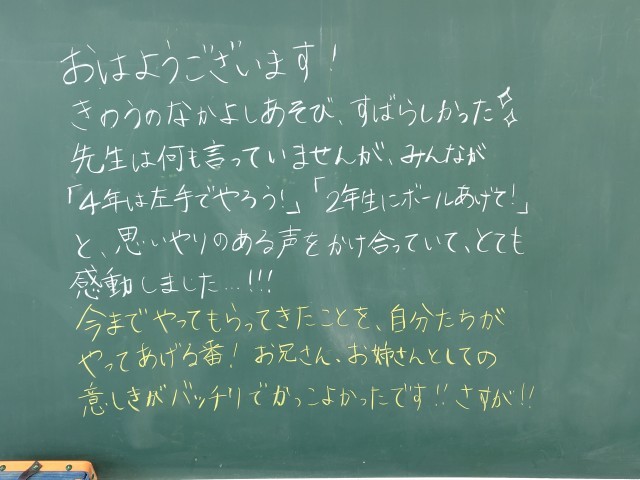 おはようございます!
きのうのなかよしあそび、すばらしかった
先生は何も言っていませんが、みんなが
「4年は左手でやろう!」「2年生にボールあげて!」
と、思いやりのある声をかけ合っていて、とても
感動しました…!!!
今までやってもらってきたことを、自分たちが
やってあげる番! お兄さん、お姉さんとしての
意しきがバッチリでかっこよかったです!! さすが!!